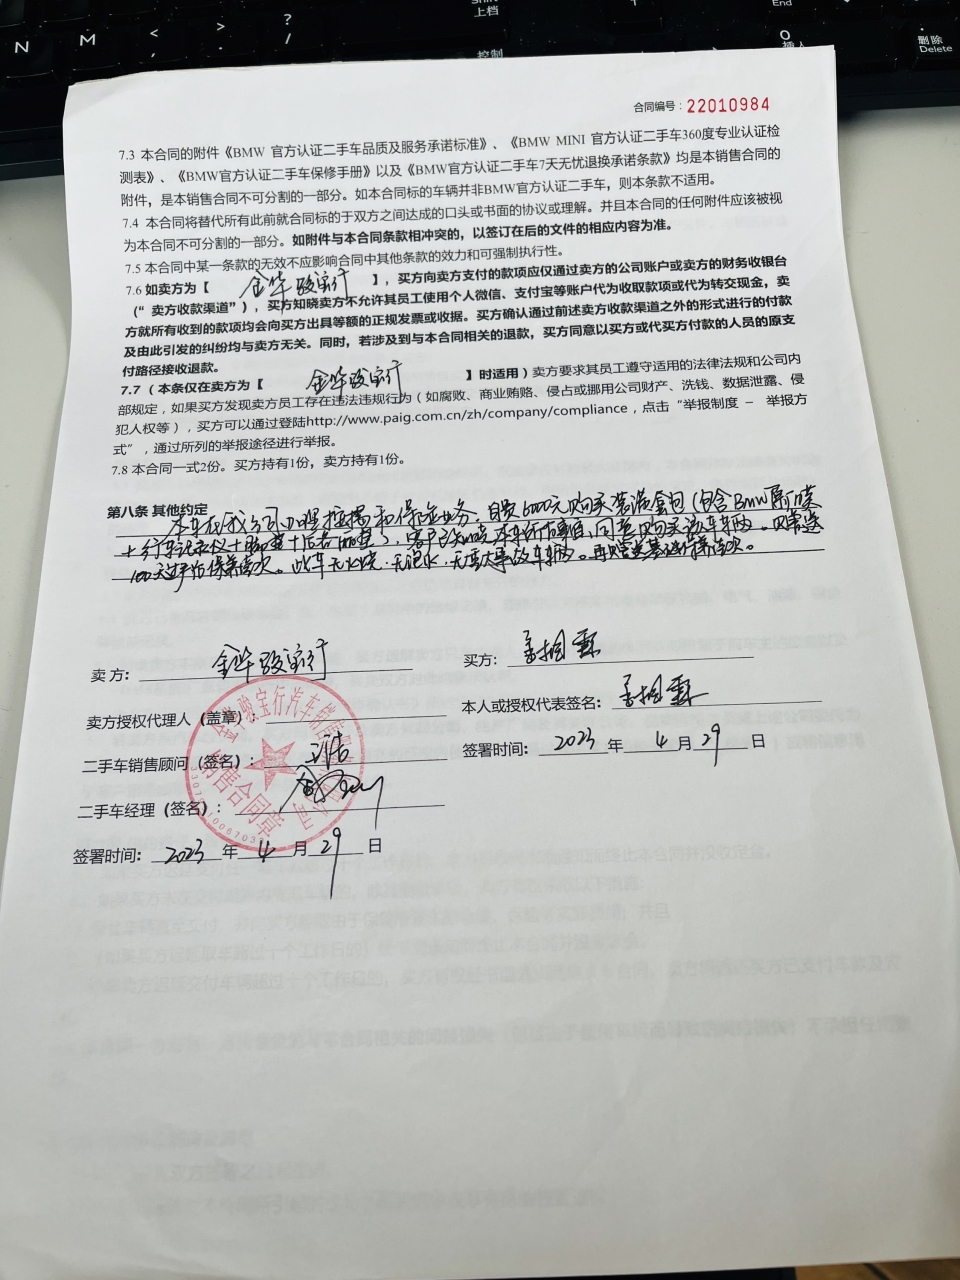 N
M
<
,
>
.
?
/
Shift
上档
控制
↑
End
O
插入
.
删除
Delete
合同编号：22010984
7.3 本合同的附件《BMW 官方认证二手车品质及服务承诺标准》、《BMW MINI 官方认证二手车360度专业认证检
测表》、《BMW官方认证二手车保修手册》以及《BMW官方认证二手车7天无忧退换承诺条款》均是本销售合同的
附件，是本销售合同不可分割的一部分。如本合同标的车辆并非BMW官方认证二手车，则本条款不适用。
7.4 本合同将替代所有此前就合同标的于双方之间达成的口头或书面的协议或理解。并且本合同的任何附件应该被视
为本合同不可分割的一部分。如附件与本合同条款相冲突的，以签订在后的文件的相应内容为准。
7.5 本合同中某一条款的无效不应影响合同中其他条款的效力和可强制执行性。
7.6 如卖方为【 金华骏宝行 】，买方向卖方支付的款项应仅通过卖方的公司账户或卖方的财务收银台
（“ 卖方收款渠道”），买方知晓卖方不允许其员工使用个人微信、支付宝等账户代为收取款项或代为转交现金，卖
方就所有收到的款项均会向买方出具等额的正规发票或收据。买方确认通过前述卖方收款渠道之外的形式进行的付款
及由此引发的纠纷均与卖方无关。同时，若涉及到与本合同相关的退款，买方同意以买方或代买方付款的人员的原支
付路径接收退款。
7.7 （ 本条仅在卖方为【 金华骏宝行 】时适用）卖方要求其员工遵守适用的法律法规和公司内
部规定，如果买方发现卖方员工存在违法违规行为（ 如腐败、商业贿赂、侵占或挪用公司财产、洗钱、数据泄露、侵
犯人权等），买方可以通过登陆http://www.paig.com.cn/zh/company/compliance，点击“举报制度 – 举报方
式”，通过所列的举报途径进行举报。
7.8 本合同一式2份。买方持有1份，卖方持有1份。
第八条 其他约定
本车在我公司办理按揭和保险业务，自费6000元购买装潢套包（包含BMW前挡膜
+行车记录仪+脚垫+后备箱垫），客户已知晓本车所有事项，同意购买该车辆，赠送
保养壹次。此车无火烧，无泡水，无重大事故车辆。再赠送基础保养壹次。
卖 方： 金华骏宝行
买方：
卖方授权代理人（盖章）：
本人或授权代表签名：
二手车销售顾问（签名）：
签署时间： 2023 年 4 月 29 日
二手车经理（签名）：
签署时间： 2023 年 4 月 29 日
销售合同章